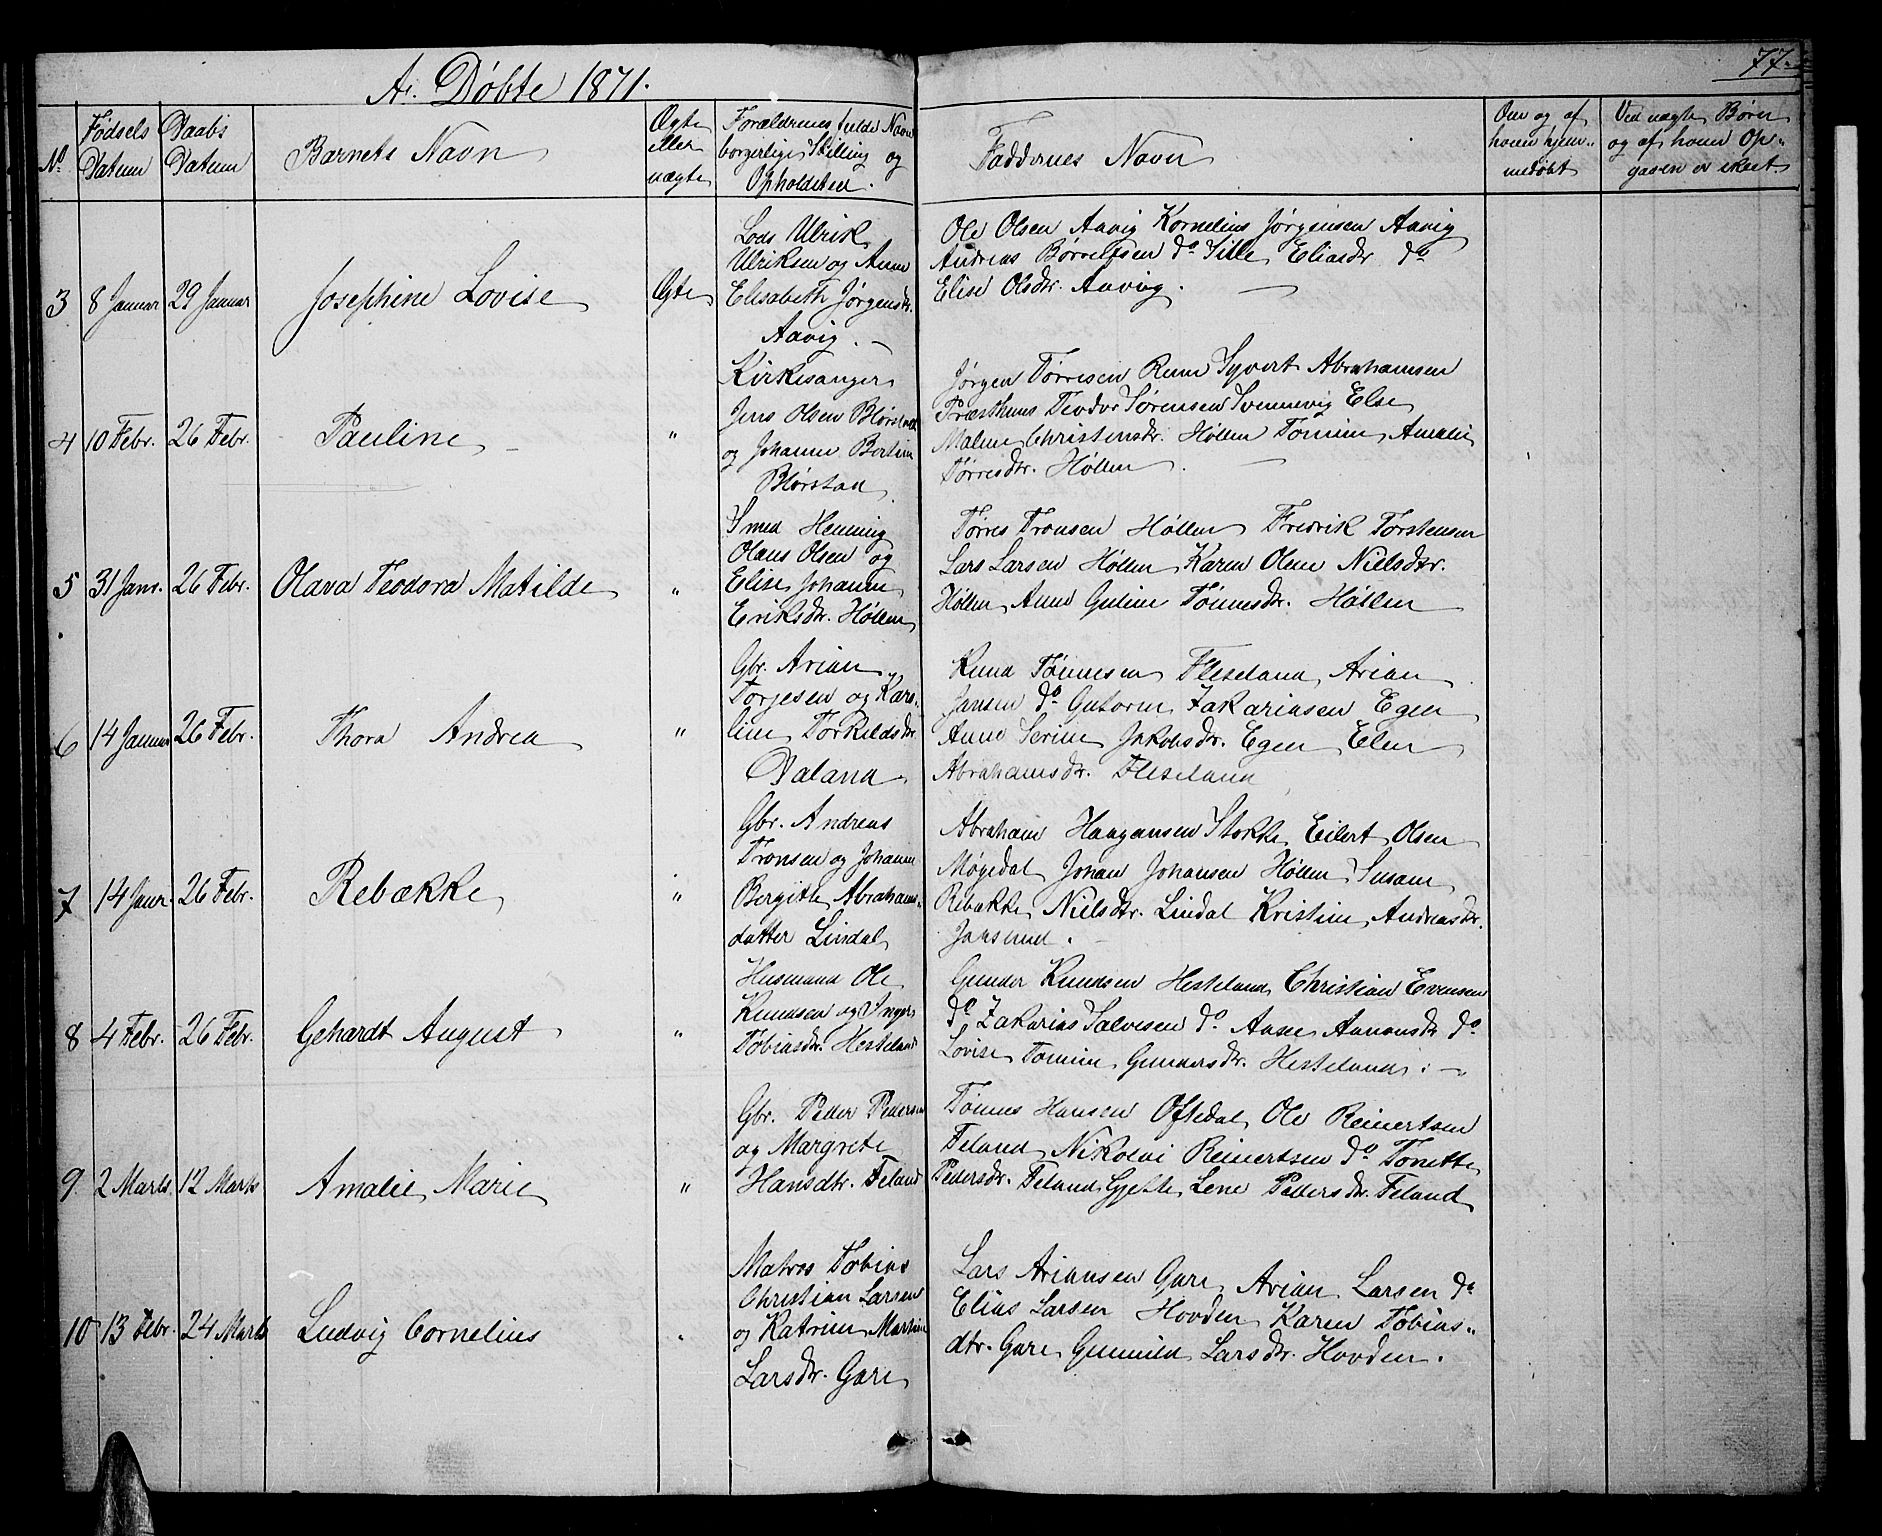 77.
A. Døbte 1871.
No
Fødsels Datum
Daabs Datum
Barnets Navn
Ægte eller uægte
Forældrenes fulde Navn
borgerlige Stilling og
Opholdsted.
Faddernes Navn
Om og af
hvem hjem-
medøbt
Ved uægte Børn
og af hvem Op-
gaven er skeet.
3 8 Januar 29 Januar Josephine Lovise Ægte
Lods Ulrik
Ulriksen og Anne
Elisabeth Jørgensdtr.
Aavig.
Ole Olsen Aavig Kornelius Jørgensen Aavig
Andreas Børrelfsen do Sille Eliasdtr do
Elise Olsdtr. Aavig.
4 10 Febr. 26 Febr. Pauline "
Kirkesanger
Jens Olsen
og Johanne Bertine
Jørgen Tørresen Syvert Abrahamsen
Præsthuus Teodor Sørensen Svennevig Else
Malene Christensdtr. Høllen Tomine Amalie
Tørresdtr. Høllen.
5 31 Janr. 26 Febr. Olava Teodora Matilde "
Smed Henning
Olaus Olsen og
Elise Johanne
Eriksdtr. Høllen
Tørres Tronsen Høllen Fredrik Torstensen
Lars Larsen Høllen Karen Olene Nielsdtr.
Høllen Anne Guline Tønnesdtr. Høllen
6 14 Januar 26 Febr. Thora Andrea "
Gbr. Arian
Torjesen og Karo-
line Torkildsdtr
Daland
Knud Tønnesen Fleseland Arian
Jansen do Gutorm Zakariasen Egen
Anne Serine Jakobsdtr. Egen Elen
Abrahamsdtr. Fleseland
7 14 Janr. 26 Febr. Rebække "
Gbr. Andreas
Tronsen og Johanne
Bergitte Abrahams-
datter Lindal
Abraham Haagansen Stokke Eilert Olsen
Møgedal Johan Johansen Høllen Susane
Rebække Nielsdtr. Lindal Kristine Andreasdtr.
8 4 Febr. 26 Febr. Gehardt August "
Husmand Ole
Knudsen og Inger
Tobiasdtr. Hesteland
Gunder Knudsen Hesteland Christian Evensen
do Zakarias Salvesen do Aase Aanonsdtr do
Lovise Tomine Gundersdtr. Hesteland.
9 2 Marts. 12 Marts Amalie Marie "
Gbr. Peder Pedersen
og Margrete
Hansdtr. Feland
Tønnes Hansen Oftedal Ole Reinertsen
Feland Nikolai Reinertsen do Tonette
Pedersdtr. Feland Gjette Lene Pedersdtr. Feland
10 13 Febr. 24 Marts Ludvig Cornelius "
Matros Tobias
Christian Larsen
og Katrine Martine
Larsdtr. Gare
Lars Ariansen Gare Arian Larsen do
Elias Larsen Hovden Karen Tobias-
dtr. Gare Gunnild Larsdtr. Hovden.